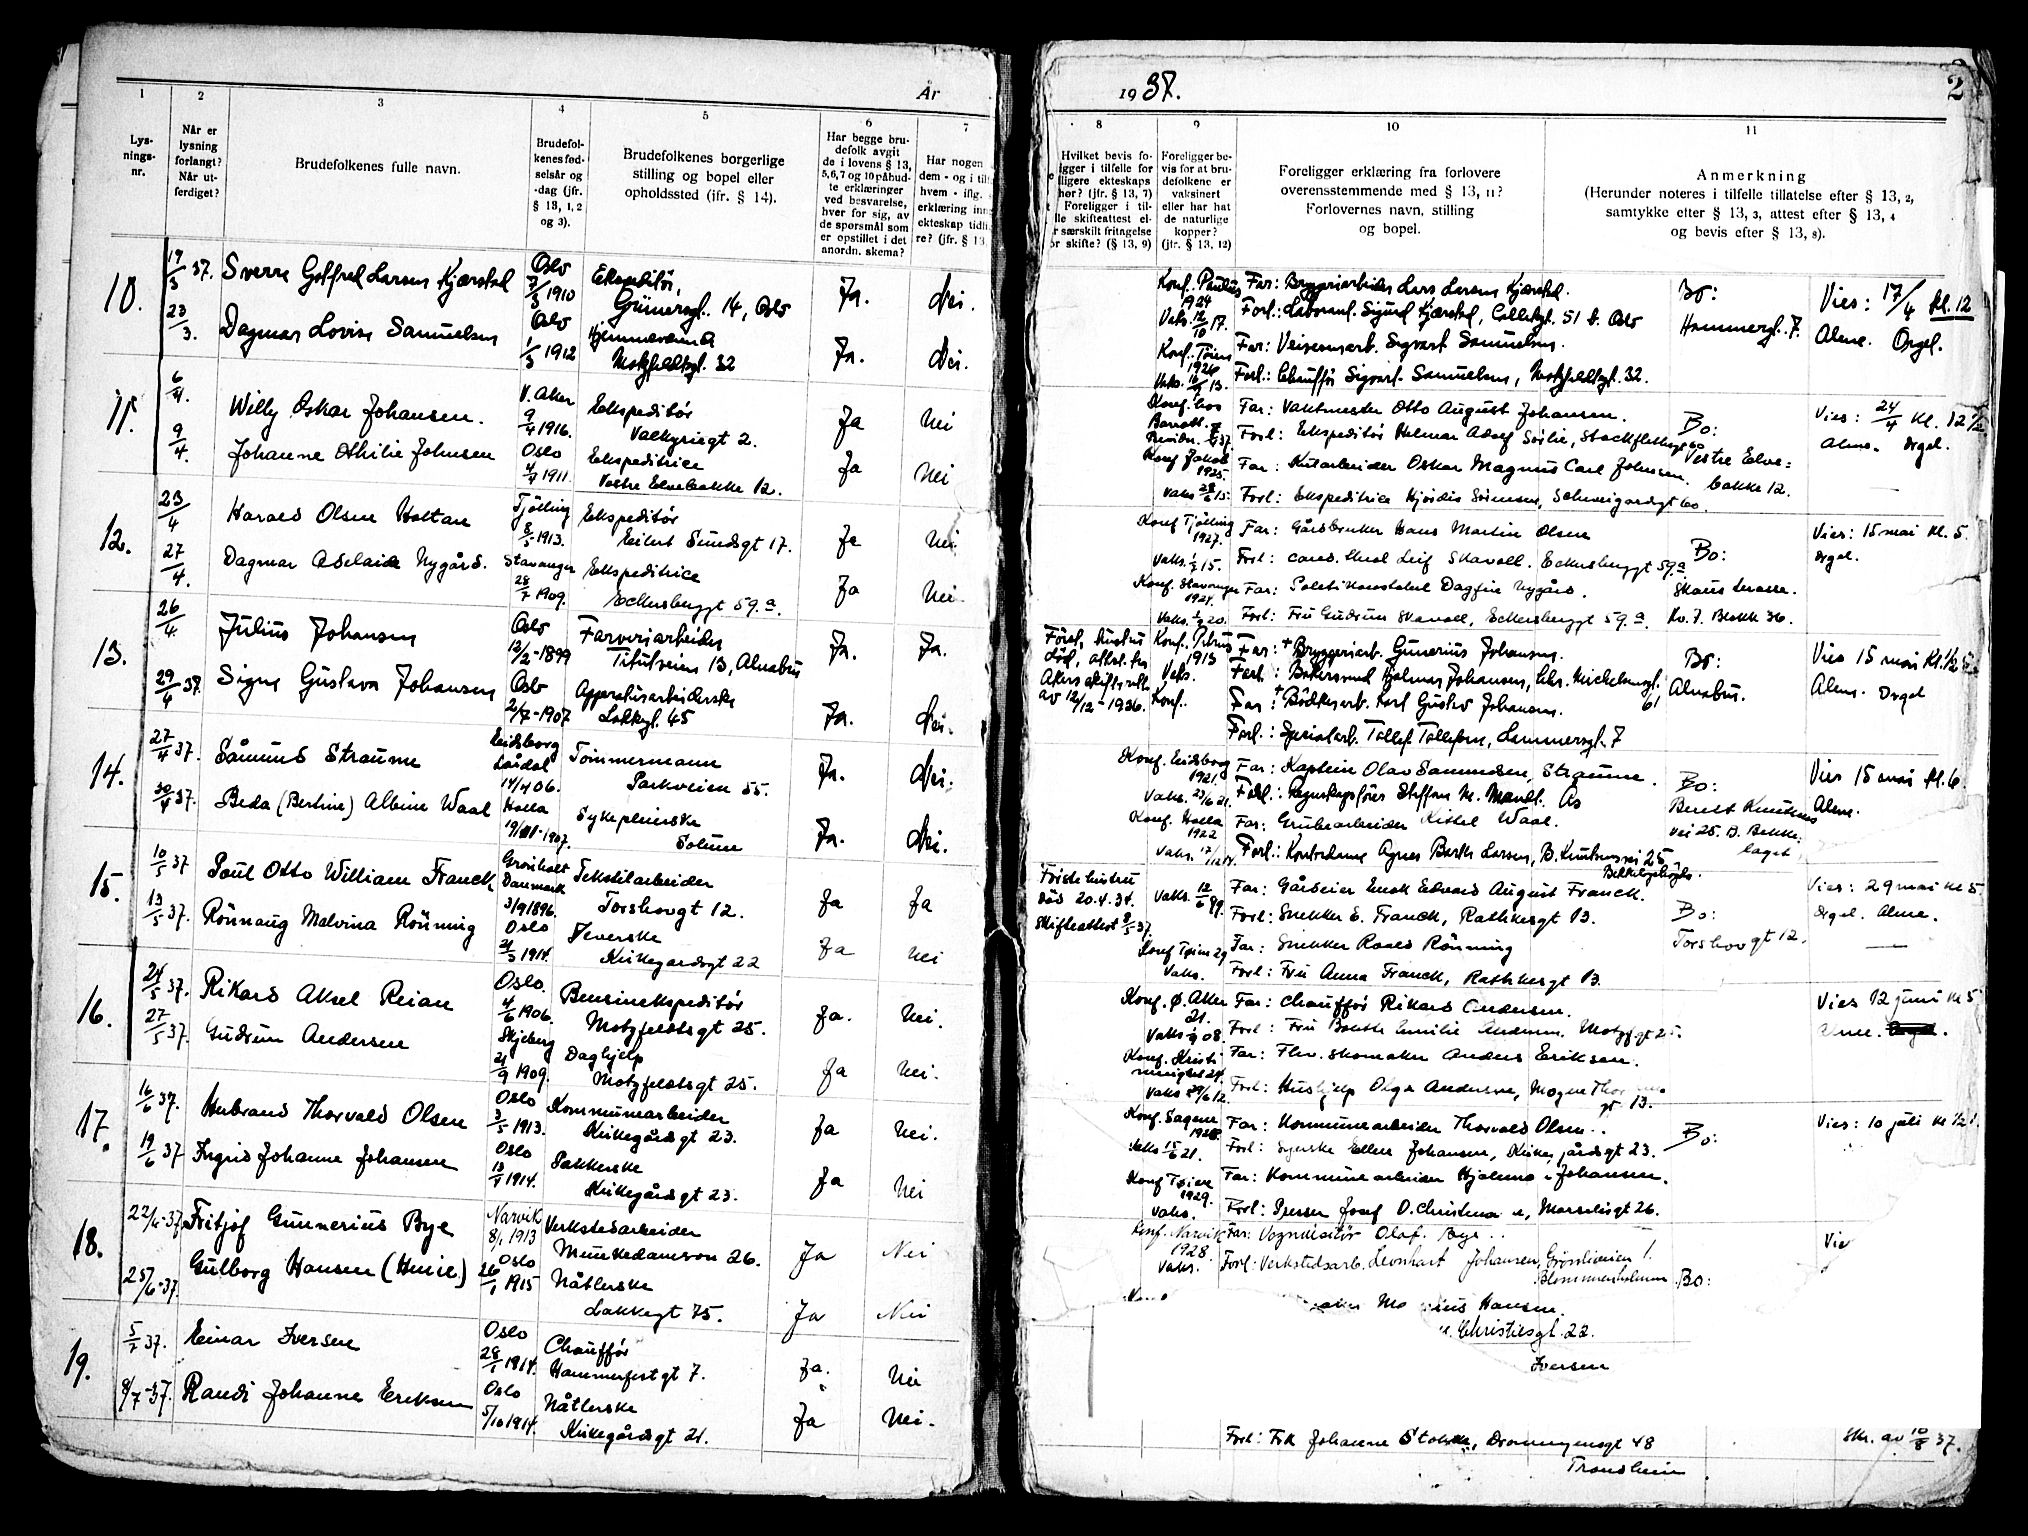 År
1937.
2
1
2
3
4
5
6
7
8
9
10
11
Lys-
nings-
nr.
Når er
lysning
forlangt?
Når ut-
ferdiget?
Brudefolkenes fulle navn.
Brudefol-
kenes fød-
selsår og
-dag (jfr.
§ 13, 1, 2
og 3).
Brudefolkenes borgerlige
stilling og bopel eller
opholdssted (jfr. § 14).
Har begge bru-
defolk avgit
de i lovens § 13,
5, 6, 7 og 10 påbud-
te erklæringer
ved besvarelse,
hver for sig, av
de spørsmål som
er opstillet i det
anordn. skema?
Har nogen
dem - og i til
hvem - iflg.
erklæring inn
ekteskap tidli
re? (jfr. § 13
Hvilket bevis fo-
ligger i tilfelle for
ligere ekteskaps
hør? (jfr. § 13, 7)
Foreligger i til-
lle skifteattest el-
r særskilt fritagelse
r skifte? (§ 13, 9)
Foreligger be-
vis for at bru-
defolkene er
vaksinert
eller har hat
de naturlige
kopper?
(jfr. § 13, 12)
Foreligger erklæring fra forlovere
overensstemmende med § 13, 11?
Forlovernes navn, stilling
og bopel.
Anmerkning
(Herunder noteres i tilfelle tillatelse efter § 13, 2,
samtykke efter § 13, 3, attest efter § 13, 4
og bevis efter § 13, 8).
10.
19/3 37.
Sverre Gotfred Larsen Kjærstad
Oslo
7/3 1910
Ekspeditør,
Grünersgt. 14, Oslo
Ja.
Nei.
Konf. Paulus
1924
Vaks. 12/10 17.
Far: Bryggeriarbeider Lars Larsen Kjærstad.
Forl.: Laborant. Sigurd Kjærstad, Colletsgt. 51 b. Oslo
Bo:
Hammergt. 7.
Vies: 17/4 kl. 12
Alene. Orgel.
23/3.
Dagmar Lovise Samuelsen
Oslo
1/3 1912
Hjemmeværende
Motzfeldtsgt. 32
Ja.
Nei.
Konf. Tøien
1926
Far: Veivesenarb. Sigvart Samuelsen.
Forl.: Chauffør Sigvart Samuelsen, Motzfeldtsgt. 32.
11.
6/4.
Willy Oskar Johansen.
V. Aker
9/4 1916.
Ekspeditør
Valkyriegt 2.
Ja
Nei
Konf. hos
Far: Vaktmester Otto August Johansen.
Forl: Ekspeditør Helmar Adolf Sørlie, Stockflethsgt 60
Bo:
Vestre Elve=
bakke 12.
Vies: 24/4 Kl. 12 1/2
Alene. Orgel.
9/4.
Johanne Othilie Johnsen
Oslo
4/4 1911.
Ekspeditrice
Vestre Elvebakke 12.
Ja
Nei
Konf Jakob
1925.
Vaks 28/6 15.
Far: Kutarbeider Oskar Magnus Carl Johnsen.
Forl: Ekspeditrice Hjørdis Sørensen, Schweigaardsgt 60.
12.
23/4
Harald Olsen Holtan
Tjølling
8/5 1913.
Ekspeditør
Eilert Sundsgt 17.
Ja
Nei.
Konf Tjølling
1927.
Far: Gårdbruker Hans Martin Olsen
Forl: cand. theol Leif Skavoll. Eckersbergsgt 59.a
Bo:
Skaus terasse.
Kv. 7. Blokk 36.
Vies: 15 mai Kl. 5.
Orgel.
27/4.
Dagmar Adelaide Nygård.
Stavanger
28/7 1909.
Ekspeditrice
Eckersbergsgt 59.a
Ja
Nei.
Konf. Stavanger
1924.
Far: Politikonstabel Dagfin Nygård.
Forl: Fru Gudrun Skavoll, Eckersbergsgt 59.a.
13.
26/4.
Julius Johansen
Oslo
12/2-1899
Farveriarbeider
Tituttveien 13, Alnabru
Ja.
Ja.
Først. hustru
død, attest fra
Akers skifterett
av 12/12-1936.
Konf. Petrus
1913
Vaks.
Far: + Bryggeriarb. Gunerius Johansen.
Forl: Bakersvend Hjalmar Johansen, Chr. Michelsensgt. 61
Bo:
Alnabru.
Vies 15 mai Kl. 1/2
Alene. Orgel
29/4 37.
Signe Gustava Johansen
Oslo
2/7-1907
Apparatusarbeiderske
Lakkegt. 45
Ja.
Nei.
Konf.
Far: + Bødkerarb. Karl Gustav Johansen.
Forl.: Spesialarb. Tollef Tollefsen, Lammersgt. 7
14.
27/4 37.
Såmund Straume
Eidsborg
Lårdal
14/4 06.
Tømmermann
Parkveien 55.
Ja.
Nei.
Konf. Eidsborg
1921.
Vaks. 23/6 21.
Far: Kaptein Olav Samundsen, Straume.
Forl.: Regnskapsfører Steffen M. Mandt. Ås
Bo:
Bernt Knudsens
vei 25. B. Bekke-
laget
Vies 15 mai Kl. 6.
Alene.
30/4 37.
Beda (Bertine) Albine Waal
Holla
19/XII-1907.
Sykepleierske
Solum
Ja.
Nei.
Konf. Holla
1922
Far: Grubearbeider Kittel Waal.
Forl.: Kontordame Agnes Barth Larsen, B. Knudsensvei 25
15.
10/5 37
Poul Otto William Franck
Grønholt
Danmark
3/9 1896.
Tekstilarbeider
Torshovgt 12.
Ja
Ja
Første hustru
død 20.4.34.
Skifteattest 8/5 37.
Vaks. 12/6 99.
Far: Gårdeier Emok Edvard August Franck.
Forl: Snekker E. Franck, Rathkesgt 13.
Bo:
Torshovgt 12.
Vies: 29 mai kl 5
Orgel. Alene.
13/5 37.
Rønnaug Malvina Rønning
Oslo
21/3 1914.
Veverske
Kirkegårdsgt 22
Ja
Nei
Konf Tøien 29
Vaks.
Far: Snekker Roald Rønning
Forl: Fru Anna Franck, Rathkesgt 13.
16.
24/5 37.
Rikard Aksel Reian
Oslo.
4/6 1906.
Bensinekspeditør
Motzfeldtsgt 25.
Ja.
Nei.
Konf. Ø. Aker
21.
Far: Chauffør Rikard Andersen.
Forl: Fru Borth Emilie Andersen. Motzf.gt 25.
Vies 12 juni kl 5
Alene.
27/5 37.
Gudrun Andersen
Skjeberg
21/9 1909.
Daghjelp
Motzfeldtsgt 25.
Ja
Nei.
Vaks 29/6 12.
Far: Fhv. skomaker Anders Eriksen.
Forl: Hushjelp Olga Andersen, Mogens Thor
gt 13.
17.
16/6 37.
Herbrand Thorvald Olsen
Oslo
3/5 1913.
Kommunearbeider
Kirkegårdsgt 23.
Ja
Nei.
Konf. Sagene
1928.
Vaks 15/6 21.
Far: Kommunearbeider Thorvald Olsen.
Forl: Syerske Ellen Johansen, Kirkegårdsgt 23.
Bo:
Vies: 10 juli kl 1/2 1.
19/6 37
Ingrid Johanne Johansen
Oslo
13/1 1914.
Pakkerske
Kirkegårdsgt 23.
Ja
Nei
Konf Tøien
1929.
Vaks.
Far: Kommunearbeider Hjalmar Johansen.
Forl: Presser Josef O. Christensen, Marselisgt 26.
18.
22/6-37
Fritjof Gunnerius Bye
Narvik
8/1 1913
Verkstedarbeider
Munkedamsvn 26.
Ja
Nei
Konf. Narvik
1928.
Vaks.
Far: Vognvisitør Olaf Bye
Forl: Verkstedsarb. Leonhart Johansen, Grønliveien 1.
Blommenholm
Bo:
Vie
25/6-37
Gulborg Hansen (Huse)
Oslo
26/1 1915
Nåtlerske
Lakkegt 75.
Ja
Nei
Hansen.
Christiesgt. 22.
19.
5/7 37.
Einar Iversen
Oslo
28/1 1914.
Chauffør
Hammerfestgt 7.
Ja.
Nei
Iversen
8/7-37.
Randi Johanne Eriksen
Oslo
5/10 1914.
Nåtlerske
Kirkegårdsgt 21.
Ja
Nei.
Forl: Frk Johanne Stokke, Dronningensgt 48
Trondheim
Skr. av 10/8 37.